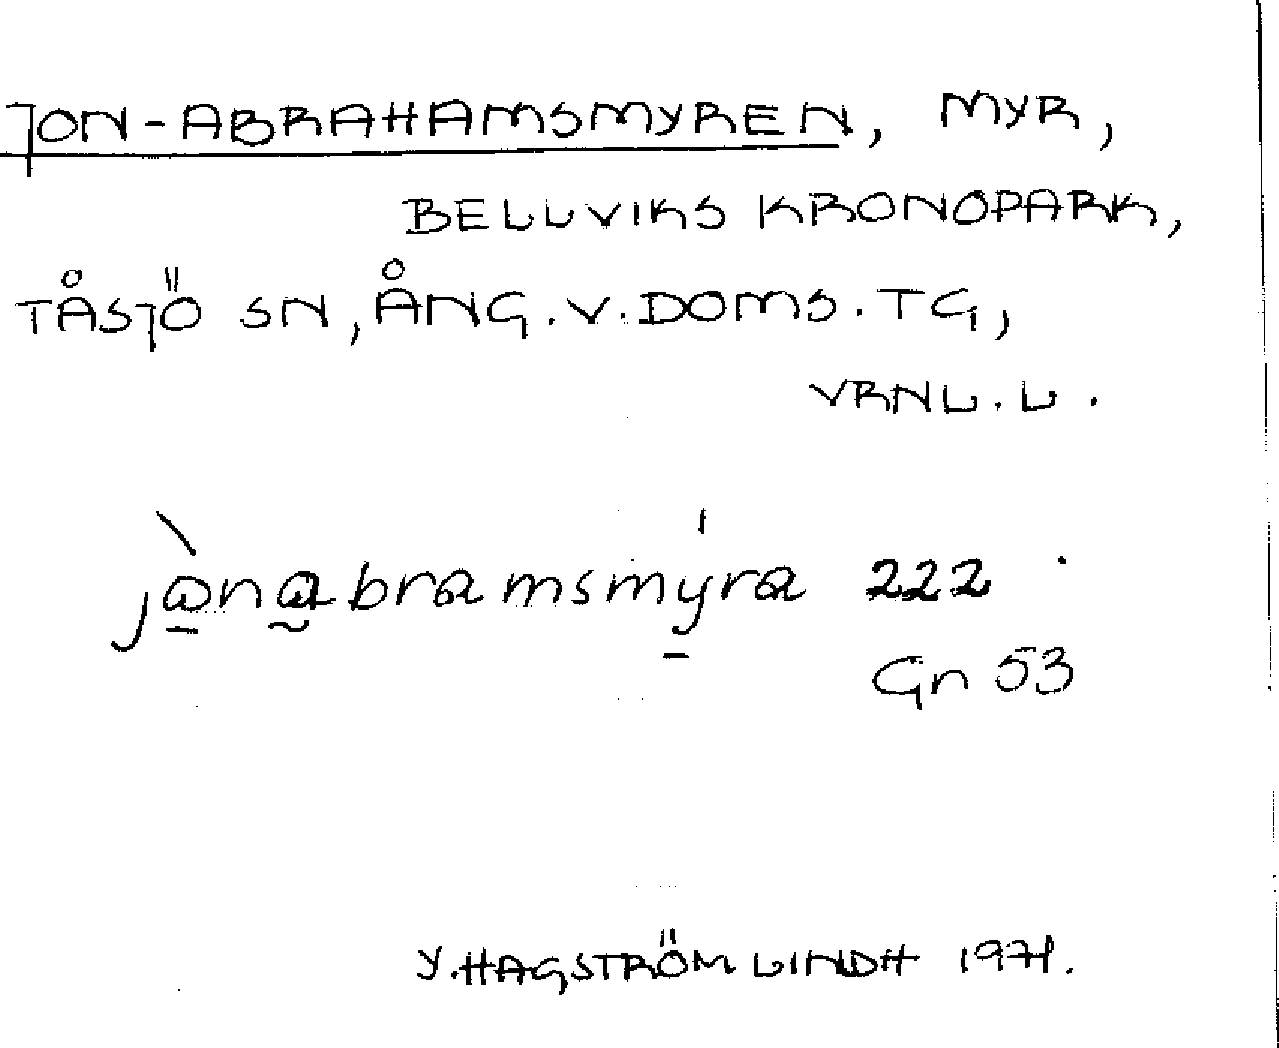 JON-ABRAHAMSMYREN, MYR,
BELLVIKS KRONOPARK,
TÅSJÖ SN, ÅNG. V. DOMS. TG,
VRNL. L.
jànabramsmyra 222
Gn 53
Y. HAGSTRÖM LINDH 1971.